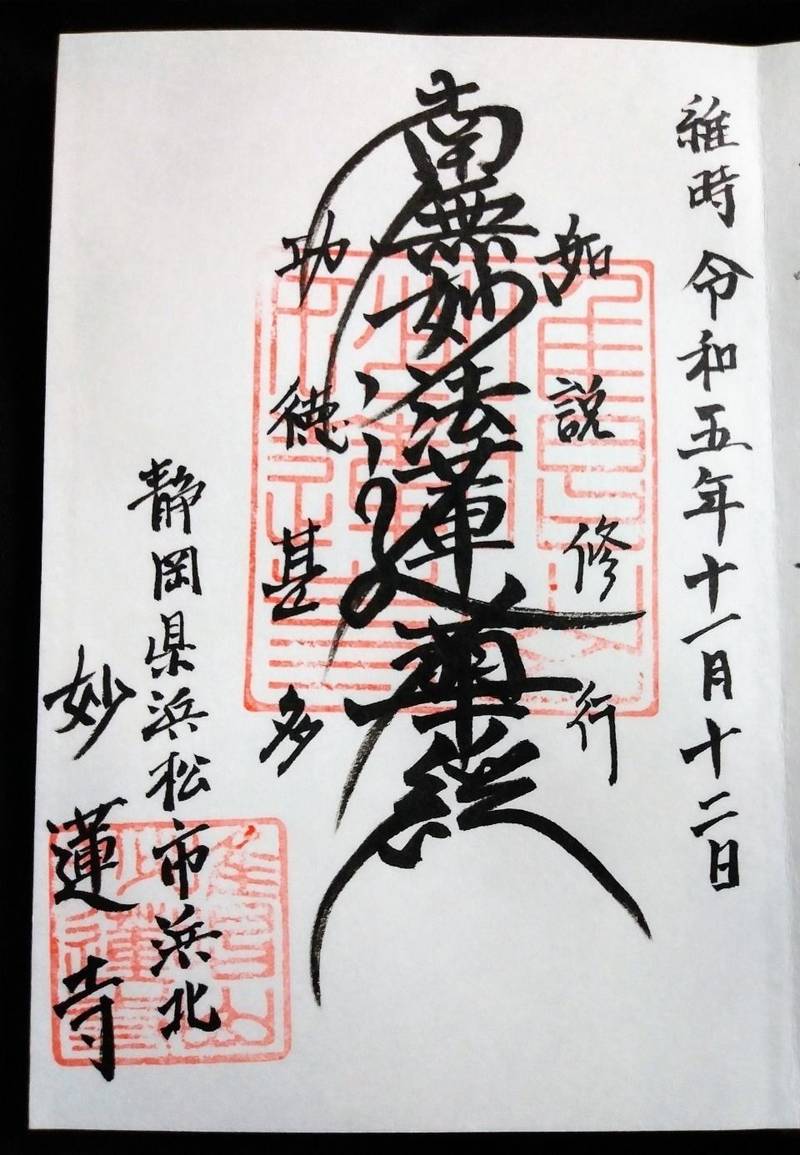 維時 令和五年十一月十二日
如説修行
南無妙法蓮華経
功徳甚多
静岡県浜松市浜北
妙蓮寺